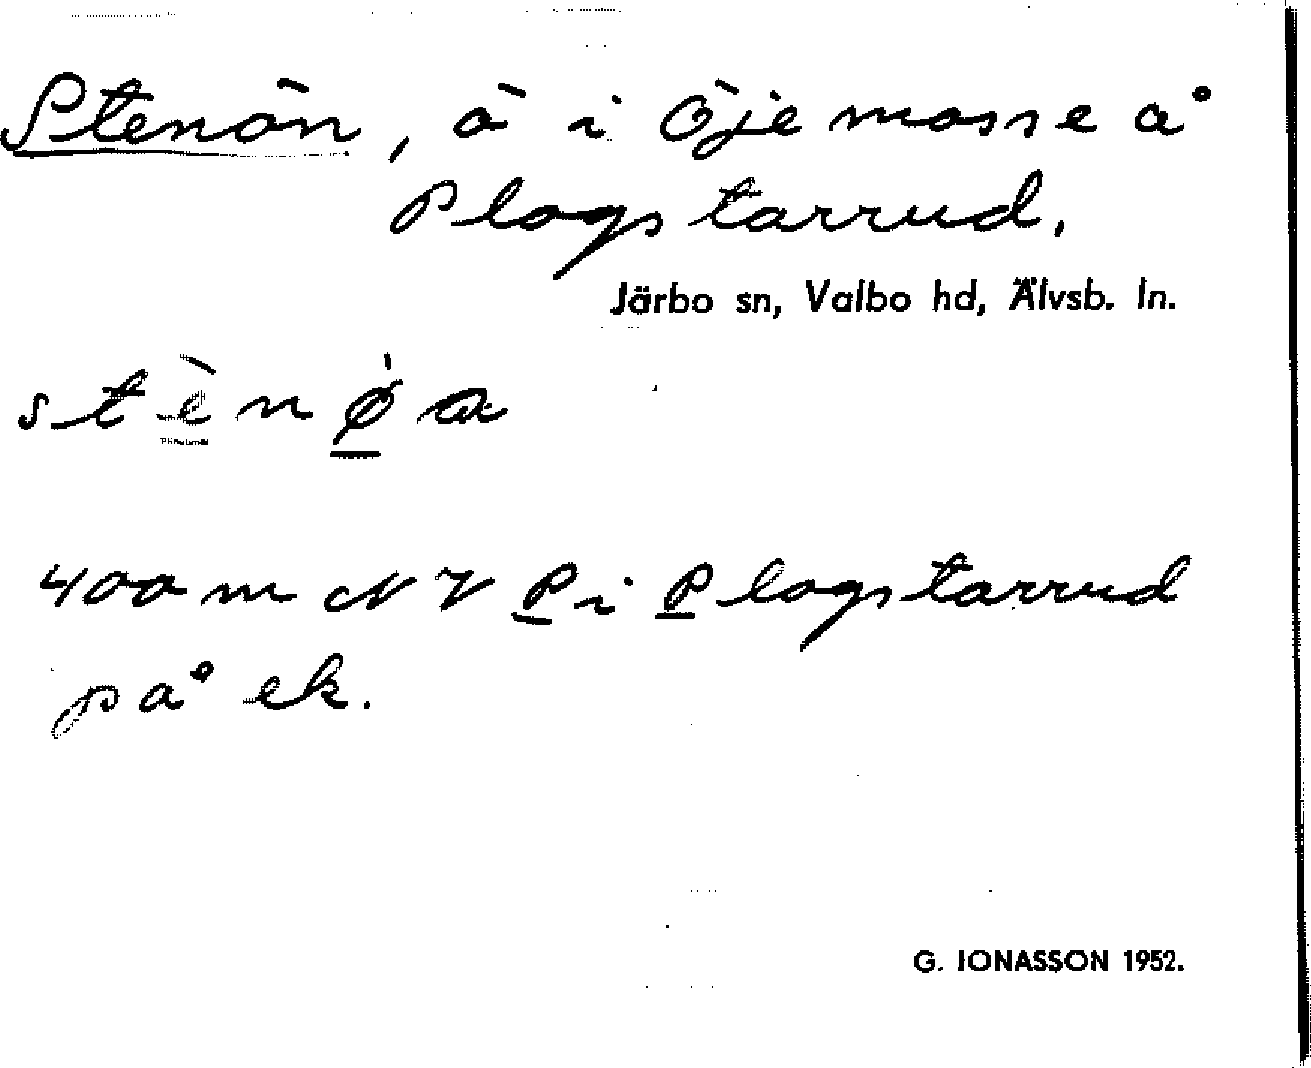 Stenön, ö i Öjemosse å
Plogstarrud.
Järbo sn, Valbo hd, Älvsb. ln.
stènø̀a
400 m NV P i Plogstarrud
på ek.
G. IONASSON 1952.